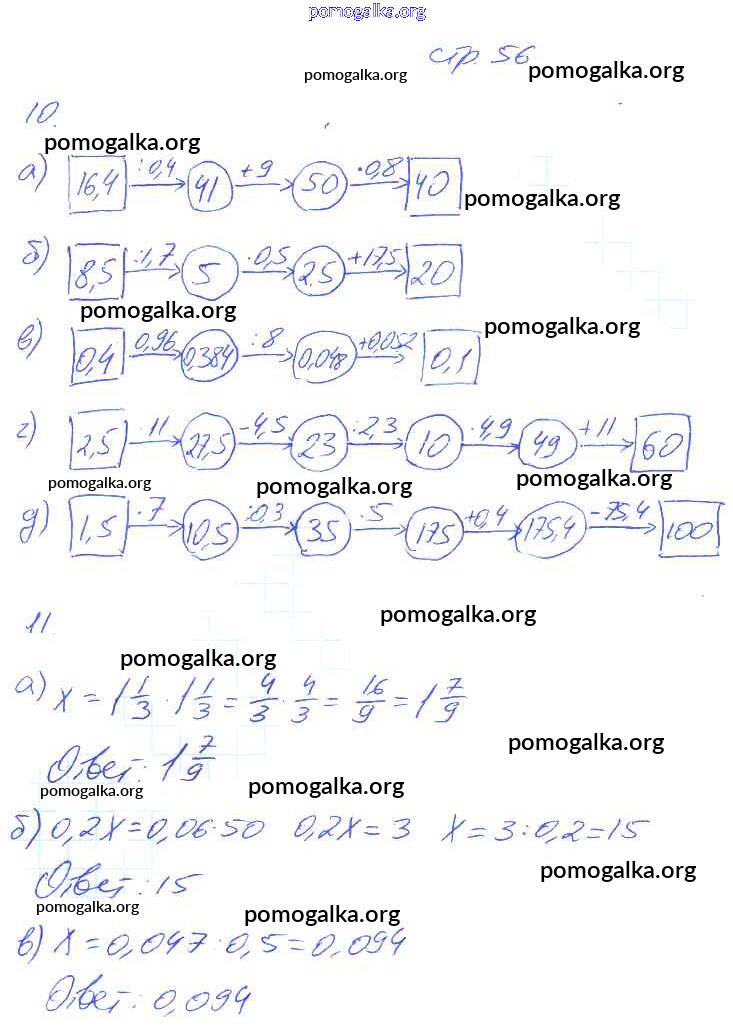 pomogalka.org
стр. 56
pomogalka.org pomogalka.org
10.
pomogalka.org
а) 16,4 :0,4 41 +9 50 ·0,8 40
pomogalka.org
б) 8,5 :1,7 5 ·0,5 2,5 +17,5 20
pomogalka.org pomogalka.org
в) 0,4 ·0,96 0,384 :8 0,048 +0,052 0,1
г) 2,5 ·11 27,5 -4,5 23 :2,3 10 ·4,9 49 +11 60
pomogalka.org pomogalka.org pomogalka.org
д) 1,5 ·7 10,5 :0,3 35 ·5 175 +0,4 175,4 -75,4 100
11.
pomogalka.org
pomogalka.org
а) x = 1 1/3 · 1 1/3 = 4/3 · 4/3 = 16/9 = 1 7/9
pomogalka.org
Ответ: 1 7/9
pomogalka.org pomogalka.org
б) 0,2x = 0,06·50 0,2x = 3 x = 3:0,2 = 15
pomogalka.org
Ответ: 15
pomogalka.org pomogalka.org
в) x = 0,047:0,5 = 0,094
Ответ: 0,094